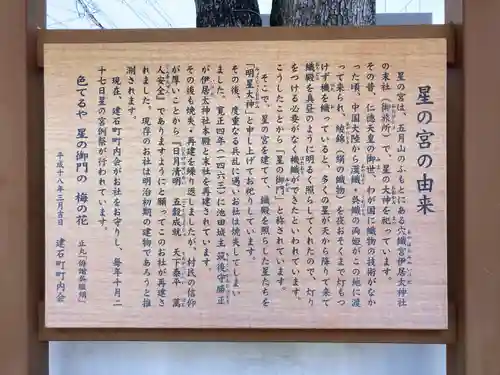 星の宮の由来
星の宮は、五月山のふもとにある穴織宮伊居太神社
の末社（御旅所）で、星の大神を祀っています。
その昔、仁徳天皇の御世、わが国に織物の技術がなか
った頃、中国大陸から漢織・呉織の両姫がこの地に渡
って来られ、綾錦（絹の織物）を夜おそくまで灯もつ
けず機を織っていると、多くの星が天から降りて来て
織殿を真昼のように明るく照らしてくれたので、灯り
をつける必要がなく機織ができたといわれています。
こうしたことから「星の御門」と称されています。
そこで、星の宮を建てて、織殿を照らした星たちを
「明星大神」と申し上げてお祀りしています。
その後、度重なる兵乱に遇いお社は焼失してしまい
ました。寛正四年（一四六三）に池田城主 筑後守勝正
が伊居太神社本殿と末社を再建されています。
その後も焼失・再建を繰り返しましたが、村民の信仰
が厚いことから『日月清明 五穀成就 天下泰平 萬
人安全』でありますようにと願ってこのお社が再建さ
れました。現存のお社は明治初期の建物であろうと推
測されます。
現在、建石町町内会がお社をお守りし、毎年十月二
十七日星の宮例祭が行われています。
色てるや 星の御門の 梅の花
平成十八年三月吉日 建石町町内会